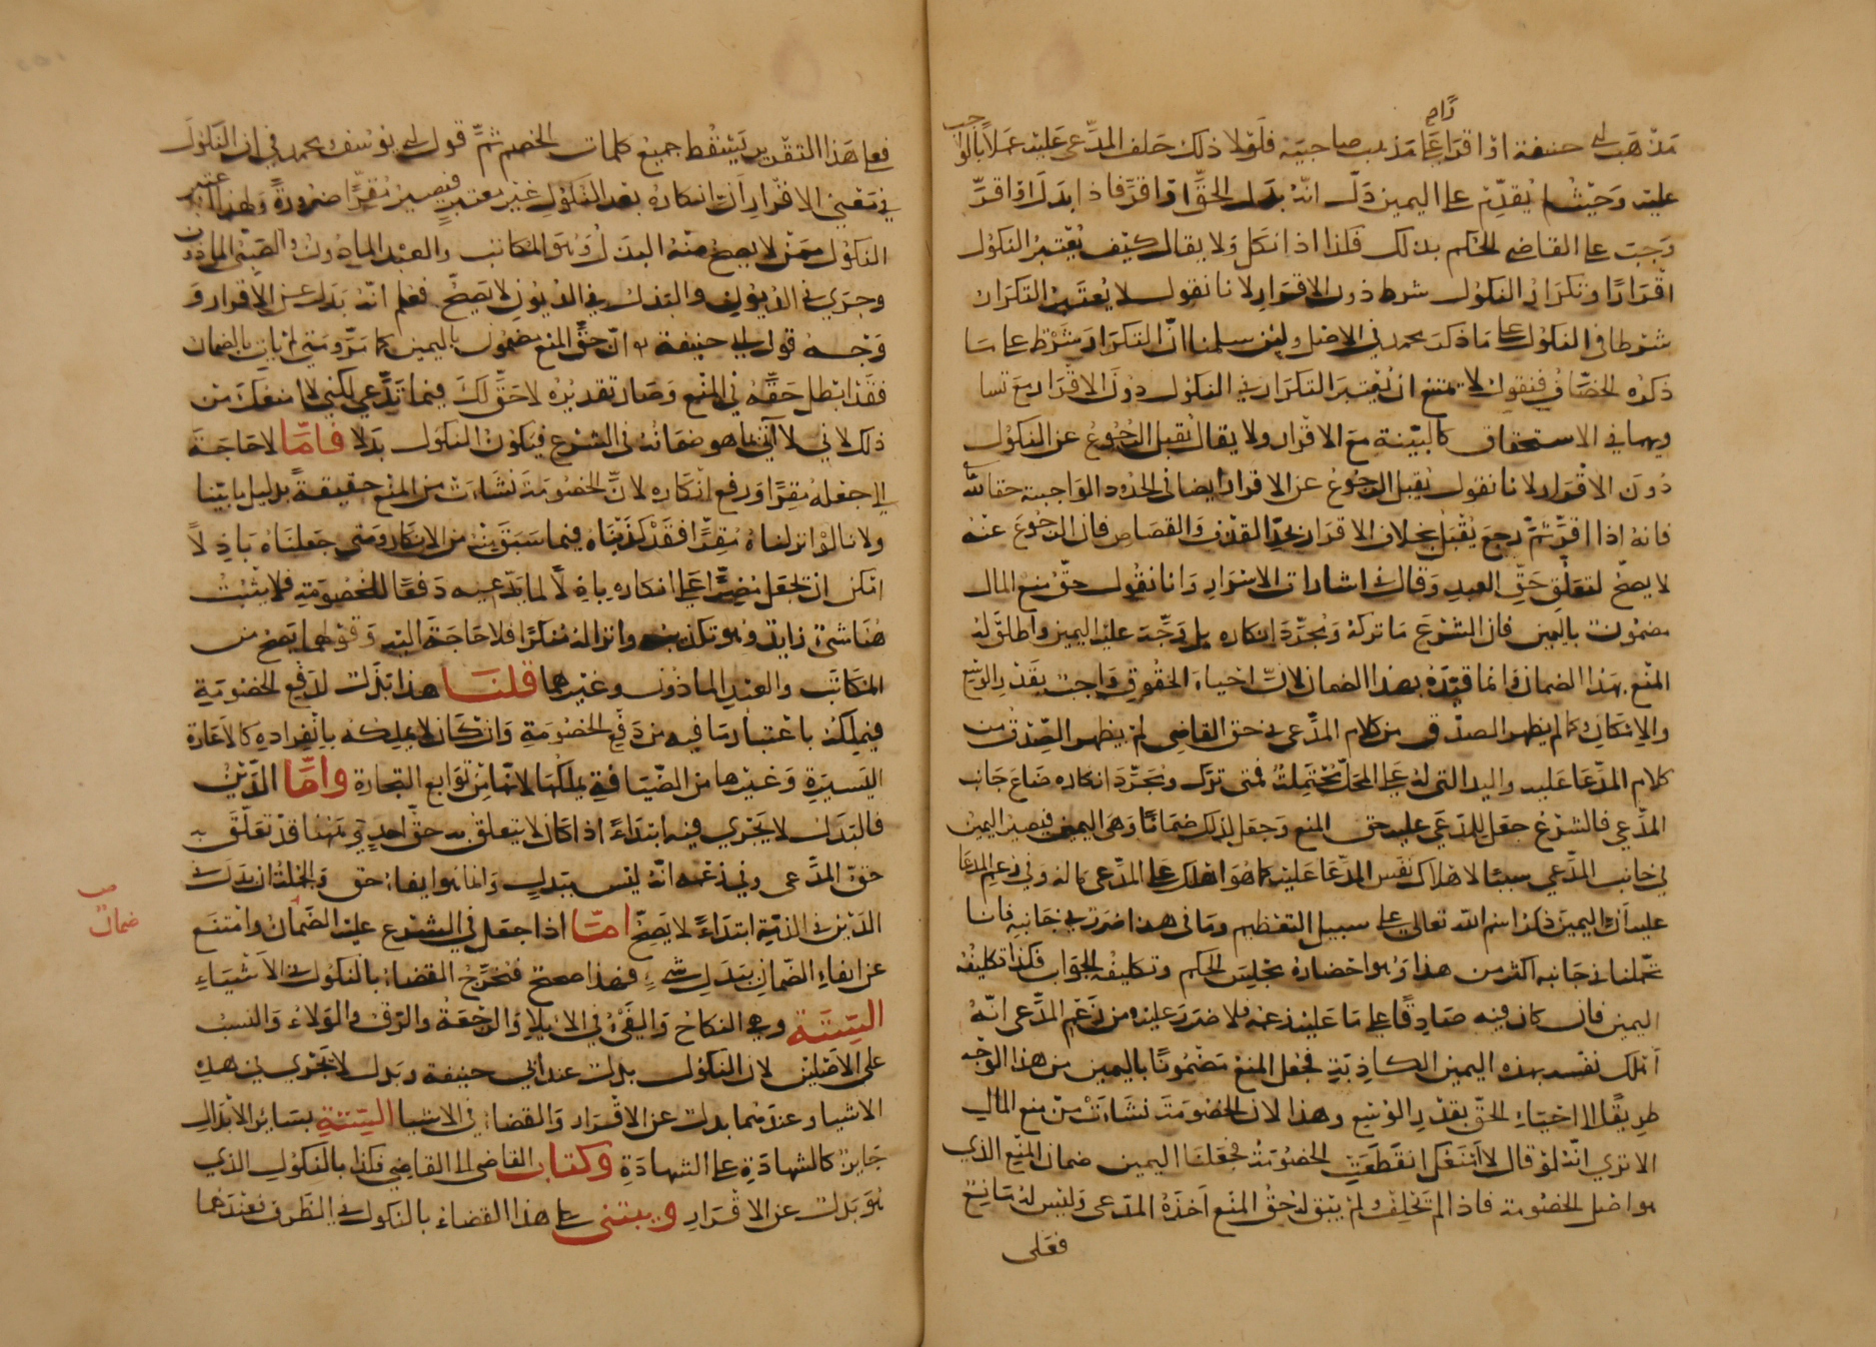 مذهب ابي حنيفة اذ اقرارا على مذهب صاحبيه فلولا ذلك حلف المدعى عليه عملا بالواجب
عليه وحيث لم يقدم على اليمين دل انه بدل الحق او اقر فاذا بدل او اقر
وجب على القاضي الحكم بذلك فلذا اذا نكل ولا يقال كيف يعتبر النكول
اقرارا وتكرار النكول شرط دون الاقرار لانا نقول لا يعتبر التكرار
شرطا في النكول على ما ذكر محمد في الاصل ولئن سلمنا ان التكرار شرط على ما
ذكره الخصاف فنقول لا يمتنع ان يعتبر التكرار في النكول دون الاقرار مع تسا
ويهما في الاستحقاق كالبينة مع الاقرار ولا يقال يقبل الرجوع عن النكول
دون الاقرار لانا نقول يقبل الرجوع عن الاقرار ايضا في الحدود الواجبة حقا لله
فانه اذا اقر ثم رجع يقبل بخلاف الاقرار بحد القذف والقصاص فان الرجوع عنه
لا يصح لتعلق حق العبد وقال في اشارات الاسرار وانا نقول حق منع المال
مضمون باليمين فان الشرع ما تركه ومجرد انكاره بل وجب عليه اليمين واطلق له
المنع بهذا الضمان وانما قيده بهذا الضمان لان احياء الحقوق واجب بقدر الوسع
والامكان كما لم يظهر الصدق من كلام المدعي في حق القاضي لم يظهر الصدق من
كلام المدعا عليه واليد التي له على المحل محتملة فمتى ترك ومجرد انكاره ضاع جانب
المدعي فالشرع جعل للمدعي عليه حق المنع وجعل لذلك ضمانا وهي اليمين فيصير اليمين
في جانب المدعي سببا لاهلاك نفس المدعا عليه كما هو اهلك على المدعي ماله وفي زعم المدعا
عليه ان اليمين ذكر اسم الله تعالى على سبيل التعظيم وما في هذا ضرر في جانبه فانا
تحملنا في جانبه اكثر من هذا وهو احضاره بمجلس الحكم وتكليفه الجواب فكذا تكليفه
اليمين فان كان فيه صادقا على ما عليه زعمه فلا ضرر عليه ومن زعم المدعي انه
اهلك نفسه بهذه اليمين الكاذبة فجعل المنع مضمونا باليمين من هذا الوجه
طريقا لاحياء الحق بقدر الوسع وهذا لان الخصومة نشات من منع المال
الا تري انه لو قال لا امنعك انقطعت الخصومة فجعلنا اليمين ضمان المنع الذي
هو اصل الخصومة فاذا لم يحلف لم يبق له حق المنع اخذه المدعي وليس له مانع
فعلى
فعلى هذا التقرير يسقط جميع كلمات الخصم ثم قول ابي يوسف ومحمد في ان النكول
في معنى الاقرار ان انكاره بعد النكول غير معتبر فيصير مقرا ضرورة ولهذا اعتبر
النكول ممن لا يصح منه البدل وهو المكاتب والعبد الماذون والصبي الماذون
وجرى في الديون والبذل في الديون لا يصح فعلم انه بدل عن الاقرار و
وجه قول ابي حنيفة ان حق المنع مضمون باليمين كما مر ومتى لم يات بالضمان
فقد ابطل حقه في المنع وصار تقديره لا حق لك فيما تدعي لكني لا امنعك من
ذلك لاني لا آتي بما هو ضمانه في الشرع فيكون النكول بدلا فاما لا حاجة
الى جعله مقرا ورفع انكاره لان الخصومة نشات من المنع حقيقة بدليل ما بينا
ولانا لو انزلناه مقرا فقد كذبناه فيما سبق منه من الانكار ومتى جعلناه باذلا
امكن ان نجعل مصرا على انكاره باذلا لما يدعيه دفعا للخصومة فلا يثبت
هنا شئ زايد وهو تكذيبه وانزاله منكرا فلا حاجة اليه وقولهما يصح من
المكاتب والعبد الماذون وغيرهما قلنا هذا بذل لدفع الخصومة
فيملكه باعتبار ما فيه من دفع الخصومة وان كان لا يملكه بانفراده كالاعارة
اليسيرة وغيرها من الضيافة يملكها لانها من توابع التجارة واما الدين
فالبدل لا يجري فيه ابتداء اذا كان لا يتعلق به حق احد وهنا قد تعلق به
حق المدعي وفي زعمه انه ليس ببدل وانما هو ايفاء حق والجملة ان بدل
الدين في الذمة ابتداء لا يصح اما اذا جعل في الشرع عليه الضمان وامتنع
عن ايفاء الضمان ببدل شيء فهذا صحيح فنخرج القضاء بالنكول في الاشياء
الستة وهي النكاح والفيء في الايلاء والرجعة والرق والولاء والنسب
على الاصلين لان النكول بدل عند ابي حنيفة وبدل لا يجري في هذه
الاشيا وعندهما بدل عن الاقرار والقضاء في الاشيا الستة بسائر الابدال
جايز كالشهادة على الشهادة وكتاب القاضي الى القاضي فكذا بالنكول الذي
هو بدل عن الاقرار ويبتني على هذا القضاء بالنكول في الطرف فعندهما
ضمان